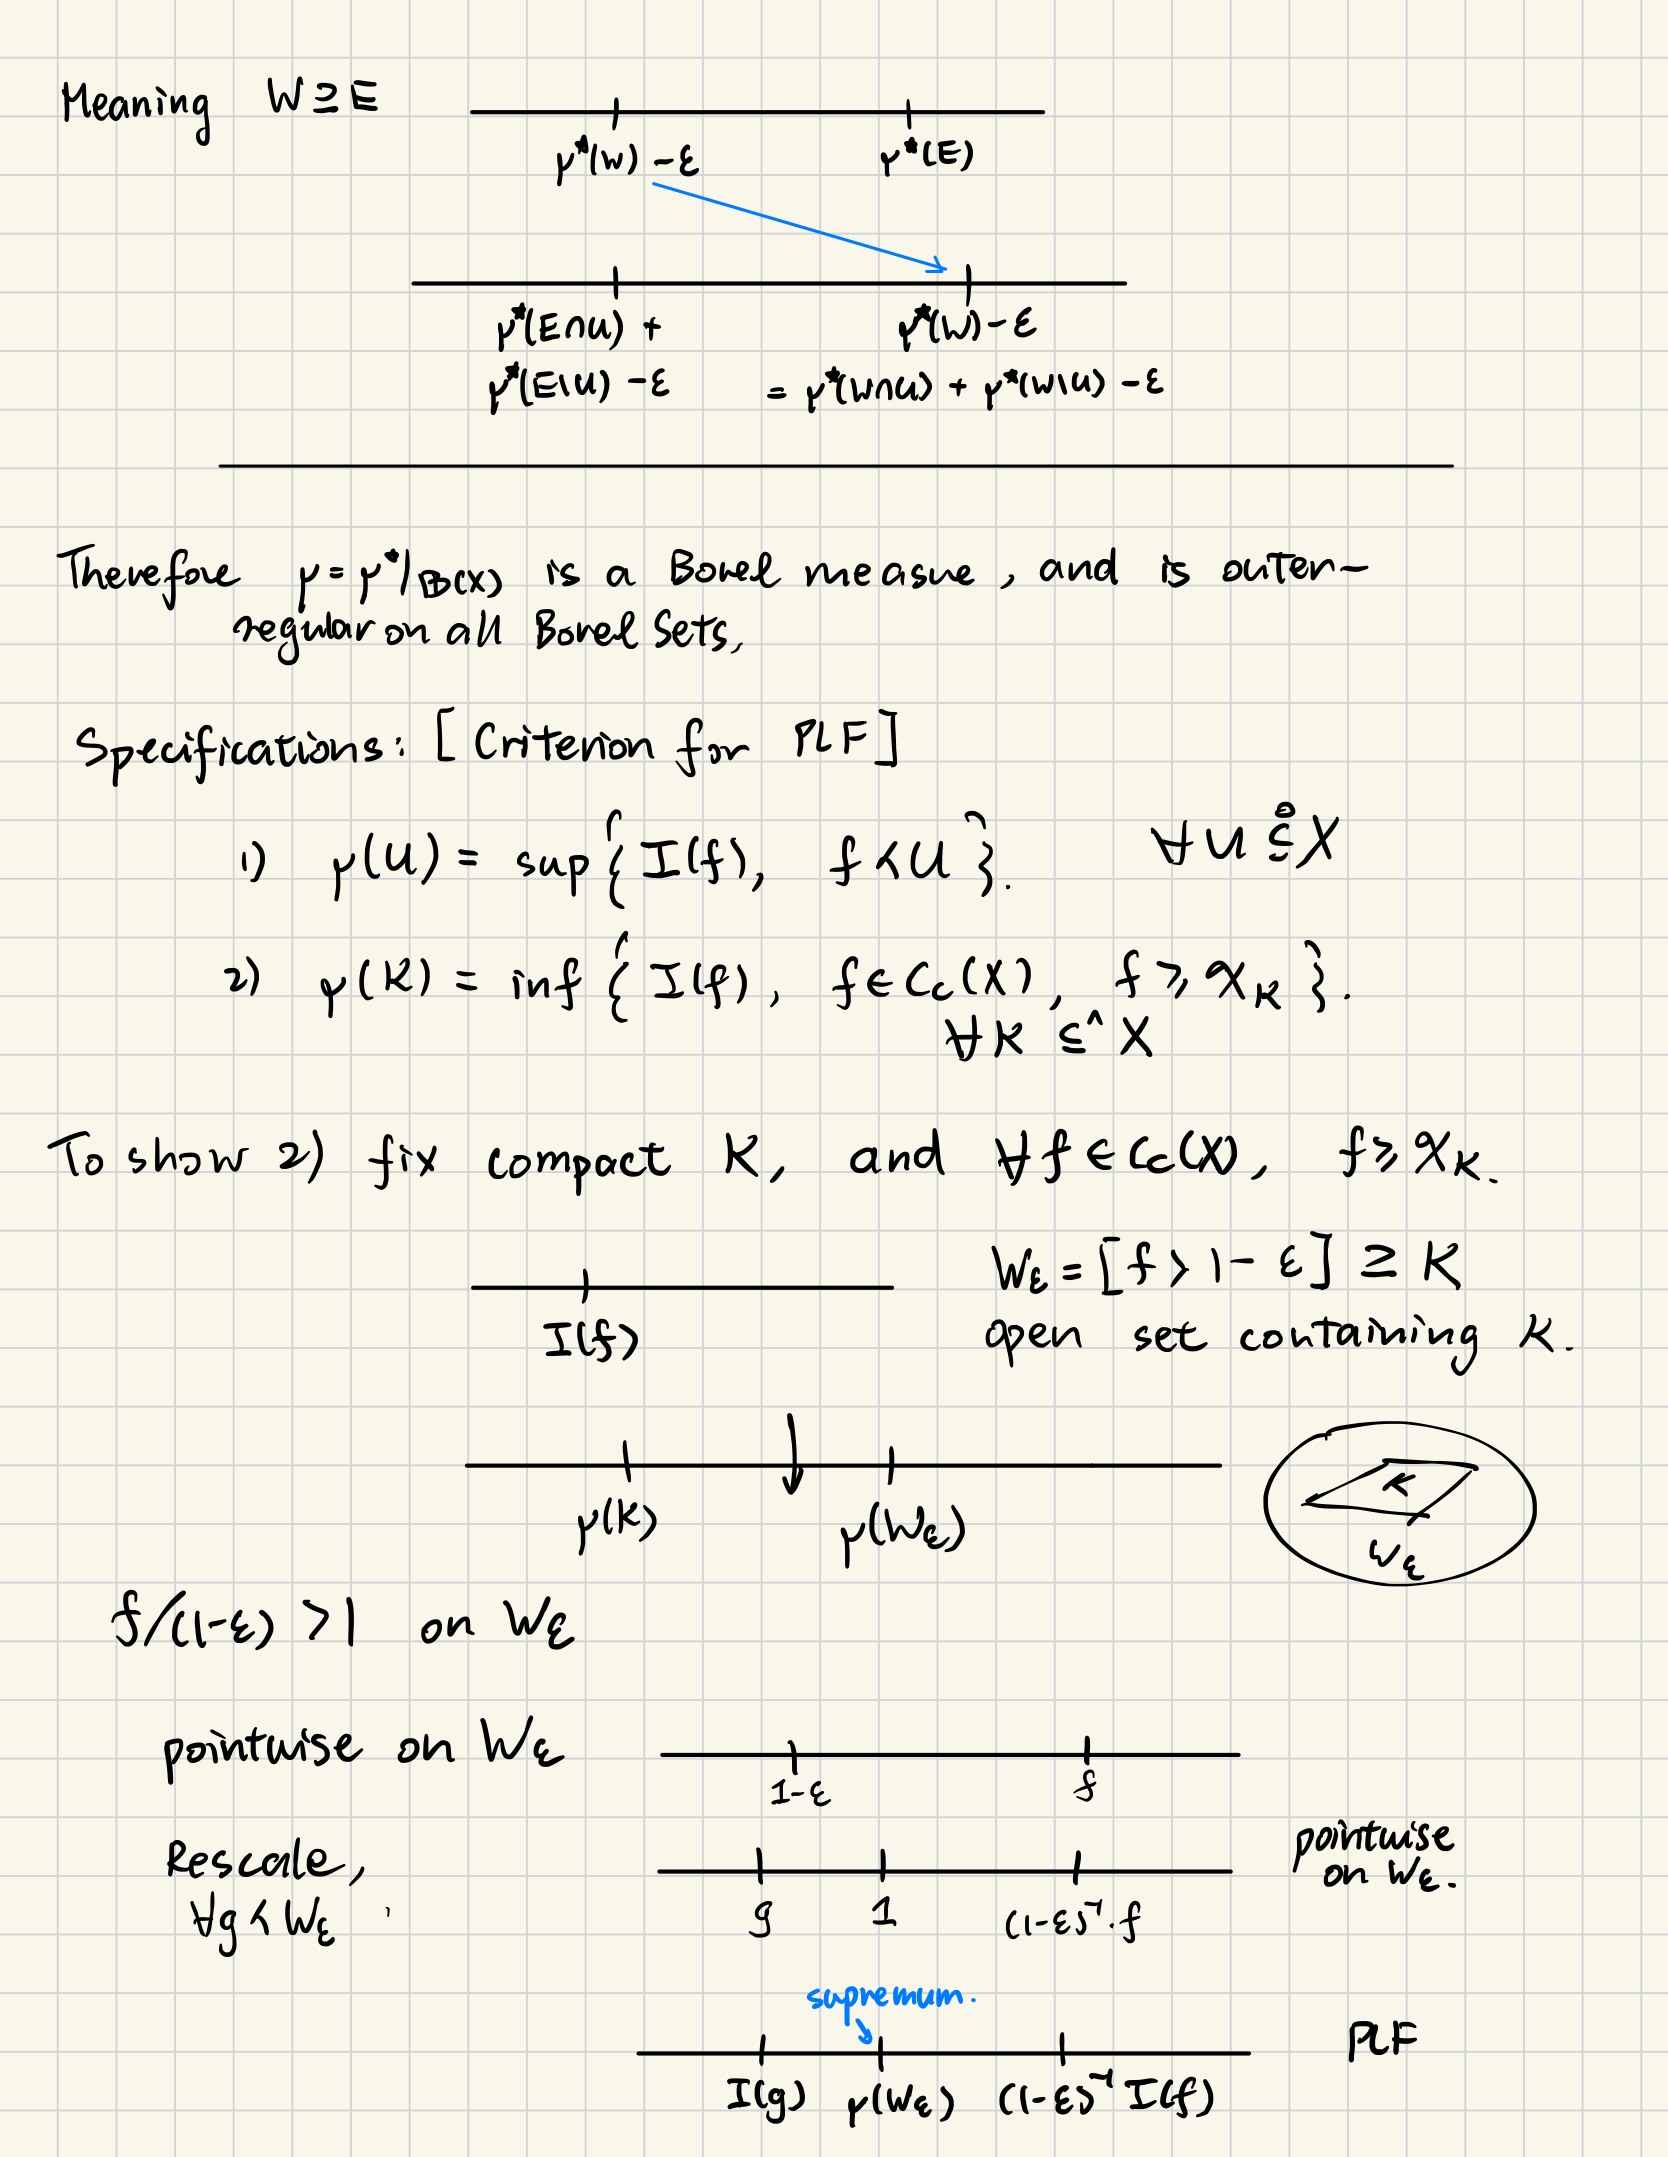 Meaning W ⊇ E
μ*(W) − ε   μ*(E)
μ*(E∩U) +   μ*(W) − ε
μ*(E\U) − ε   = μ*(W∩U) + μ*(W\U) − ε
Therefore μ = μ*|𝔹(X) is a Borel measue, and is outer-
regular on all Borel Sets,
Specifications: [Criterion for PLF]
1) μ(U) = sup { I(f), f ≺ U }. ∀ U ⊆° X
2) μ(K) = inf { I(f), f ∈ Cc(X), f ⩾ χ_K }.
∀ K ⊆^ X
To show 2) fix compact K, and ∀ f ∈ Cc(X), f ⩾ χ_K.
W_ε = [f > 1 − ε] ⊇ K
I(f)   open set containing K.
μ(K)   μ(W_ε)   K
W_ε
f/(1−ε) > 1 on W_ε
pointwise on W_ε   1−ε   f
Rescale,   pointwise
on W_ε.
∀g ≺ W_ε   g   1   (1−ε)⁻¹·f
supremum.
PLF
I(g)   μ(W_ε)   (1−ε)⁻¹ I(f)